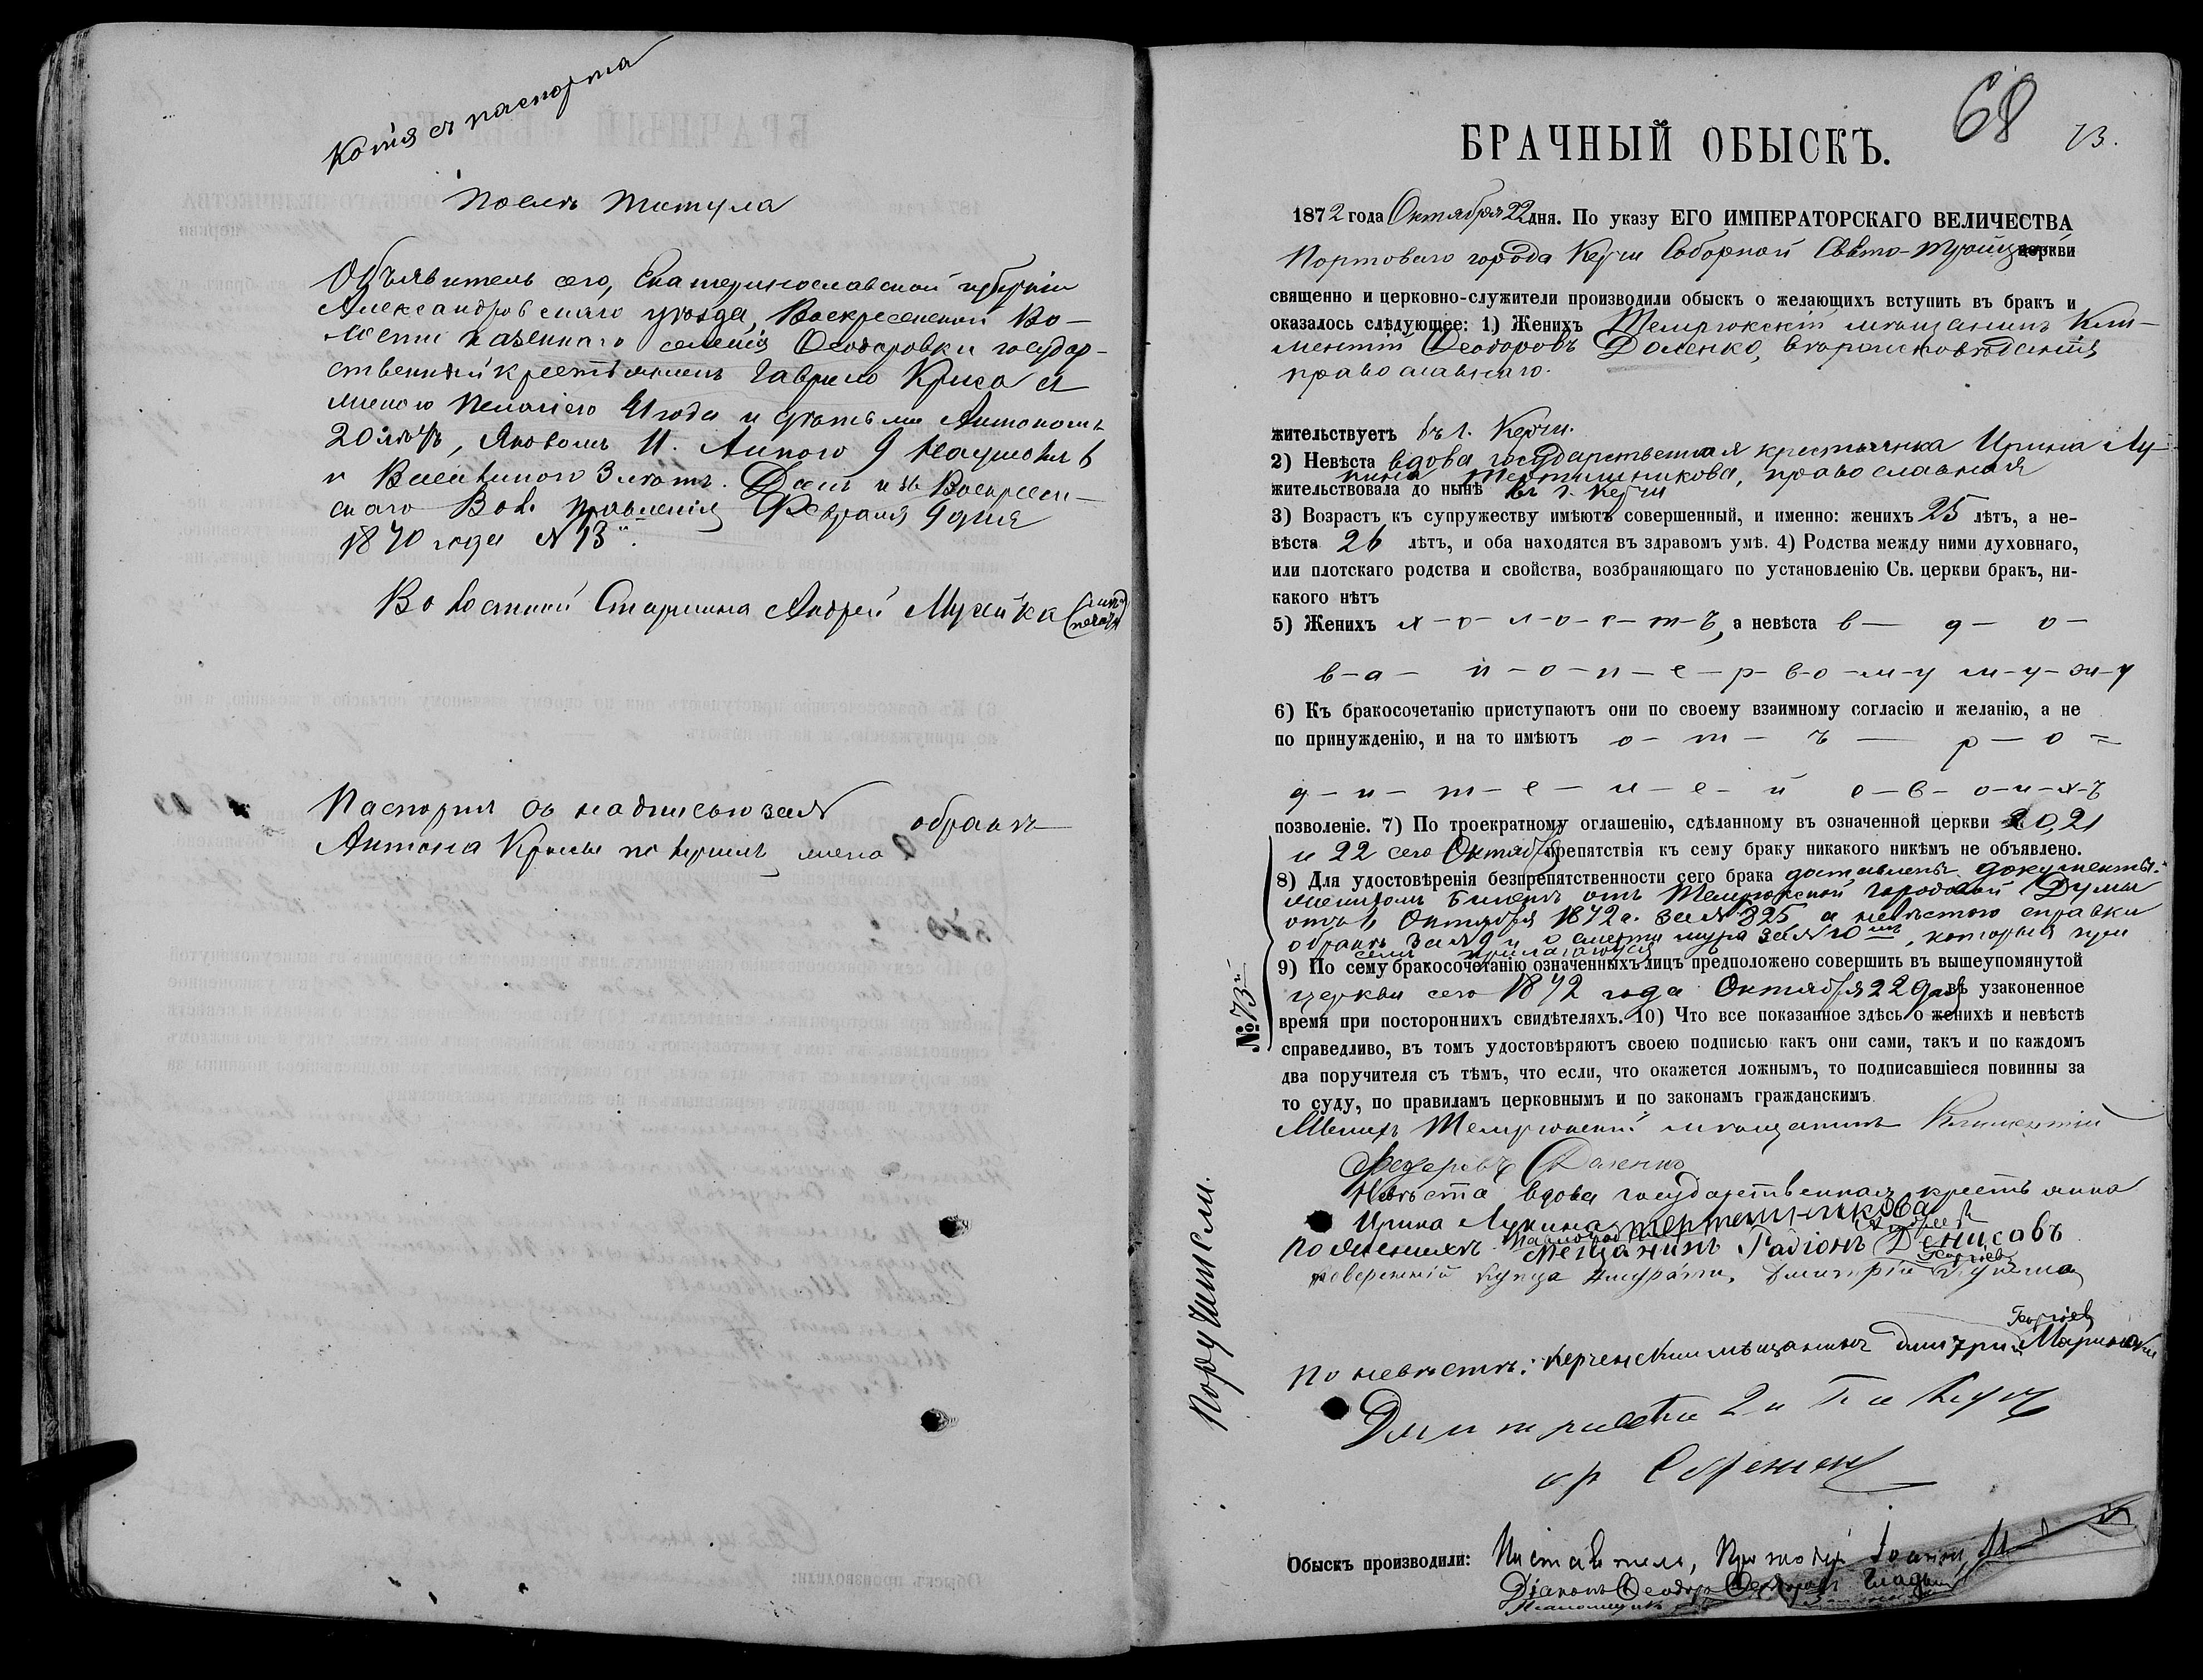 Копія съ паспорта
Послѣ титула
Объявитель сего, Екатеринославской губерніи
Александровскаго уѣзда, Воскресенской Во-
лости казеннаго селенія Ѳеодоровки государ-
ственный крестьянинъ Гаврило Криса съ
женою Пелагіею 41 года и дѣтьми Антономъ
20 лѣтъ, Яковомъ 11. Анною 9 Наумомъ 6
и Василиною 3 лѣтъ. Данъ изъ Воскресен-
скаго Вол. правленія Февраля 9 дня
1870 года № 13й.
Волостной Старшина Андрей Мухийка
(печать)
Паспортъ съ надписью за №
Антона Крисы получилъ обратно
68
73.
БРАЧНЫЙ ОБЫСКЪ.
1872 года Октября 22 дня. По указу ЕГО ИМПЕРАТОРСКАГО ВЕЛИЧЕСТВА
Портоваго города Керчи Соборной Свято-Троицк церкви
священно и церковно-служители производили обыскъ о желающихъ вступить въ бракъ и
оказалось слѣдующее: 1) Женихъ Темрюкскій мѣщанинъ Кли-
ментій Ѳеодоровъ Доленко, вѣроисповѣданія
православнаго.
жительствуетъ въ г. Керчи.
2) Невѣста вдова государственная крестьянка Ирина Лу-
кина Тертишникова, православная
жительствовала до нынѣ въ г. Керчи
3) Возрастъ къ супружеству имѣютъ совершенный, и именно: женихъ 25 лѣтъ, а не-
вѣста 26 лѣтъ, и оба находятся въ здравомъ умѣ. 4) Родства между ними духовнаго,
или плотскаго родства и свойства, возбраняющаго по установленію Св. церкви бракъ, ни-
какого нѣтъ
5) Женихъ х-о-л-о-с-т-ъ, а невѣста в- д- о-
в-а- п-о-п-е-р-в-о-м-у м-у-ж-у
6) Къ бракосочетанію приступаютъ они по своему взаимному согласію и желанію, а не
по принужденію, и на то имѣютъ о- т- ъ- р-о=
д-и-т-е-л-е-й с-в-о-и-х-ъ
позволеніе. 7) По троекратному оглашенію, сдѣланному въ означенной церкви 20, 21
и 22 сего Октября препятствія къ сему браку никакого никѣмъ не объявлено.
8) Для удостовѣренія безпрепятственности сего брака доставлены документы:
женихомъ билетъ отъ Темрюкской Городовой Думы
отъ Октября 1872 г. за № 325, а невѣстою справки
обыскъ за № 9 и о смерти мужа за № 10мъ, которыя при
семъ прилагаются
9) По сему бракосочетанію означенныхъ лицъ предположено совершить въ вышеупомянутой
церкви сего 1872 года Октября 22 дня въ узаконенное
время при постороннихъ свидѣтеляхъ. 10) Что все показанное здѣсь о женихѣ и невѣстѣ
справедливо, въ томъ удостовѣряютъ своею подписью какъ они сами, такъ и по каждомъ
два поручителя съ тѣмъ, что если, что окажется ложнымъ, то подписавшіеся повинны за
то суду, по правиламъ церковнымъ и по законамъ гражданскимъ
№ 73й
Женихъ Темрюкскій мѣщанинъ Климентій
Федоровъ Доленко
Невѣста вдова государственная крестьянка
Ирина Лукина Тертишникова
По женихѣ: мещанинъ Радіонъ Андреевъ Денисовъ
Дмитрій Георгіевъ
Поручители.
По невѣстѣ: Керченскій мѣщанинъ Дмитрій Георгіевъ
Обыскъ производили: Настоятель, Протоіер Іоаннъ
Діаконъ Ѳеодоръ
Псаломщикъ